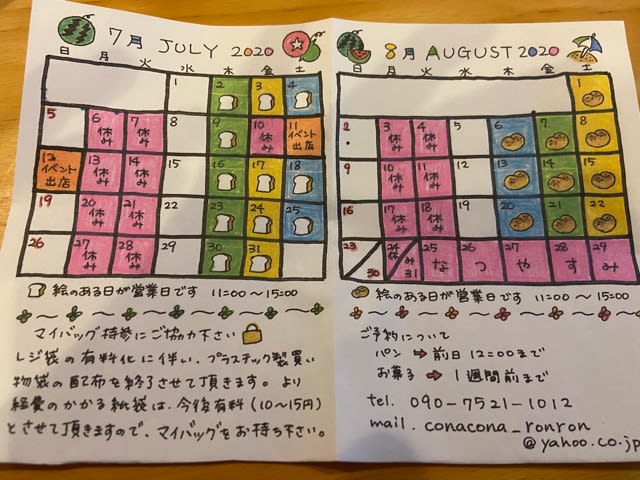 7月 JULY 2020
日 月 火 水 木 金 土
1 2 3 4
5 6 休み 7 休み 8 9 10 休み 11 イベント出店
12 イベント出店 13 休み 14 休み 15 16 17 18
19 20 休み 21 休み 22 23 24 25
26 27 休み 28 休み 29 30 31
絵のある日が営業日です 11:00～15:00
マイバッグ持参にご協力下さい
レジ袋の有料化に伴い、プラスチック製買い
物袋の配布を終了させて頂きます。より
経費のかかる紙袋は、今後有料(10～15円)
とさせて頂きますので、マイバッグをお持ち下さい。
8月 AUGUST 2020
日 月 火 水 木 金 土
1
2 3 休み 4 休み 5 6 7 8
9 10 休み 11 休み 12 13 14 15
16 17 休み 18 休み 19 20 21 22
23 30 24 休み 31 25 な 26 つ 27 や 28 す 29 み
絵のある日が営業日です 11:00～15:00
ご予約について
パン → 前日12:00まで
お菓子 → 1週間前まで
tel. 090-7521-1012
mail. conacona_ronron
@yahoo.co.jp